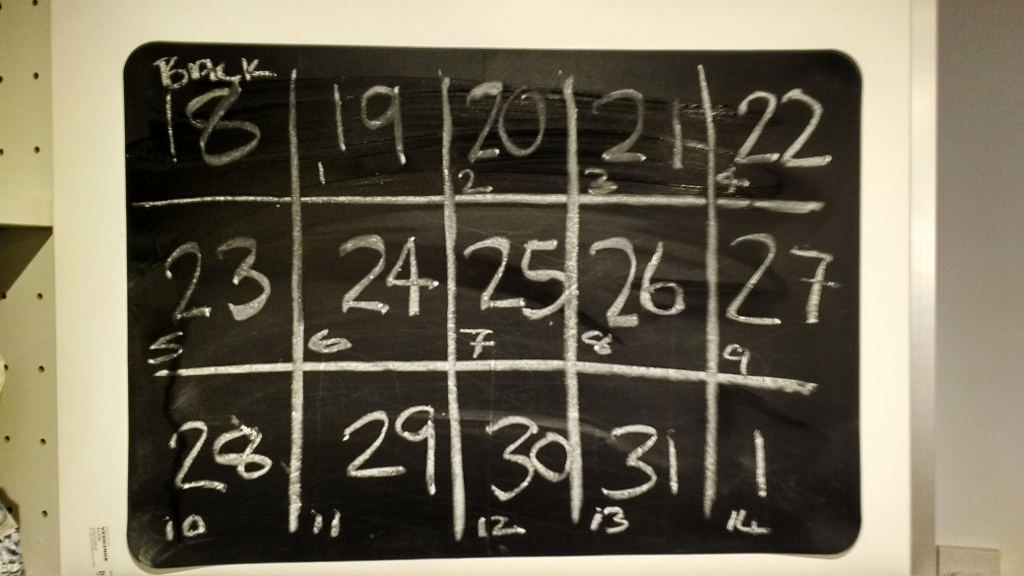 BACK
18 19 20 21 22
1 2 3 4
23 24 25 26 27
5 6 7 8 9
28 29 30 31 1
10 11 12 13 14